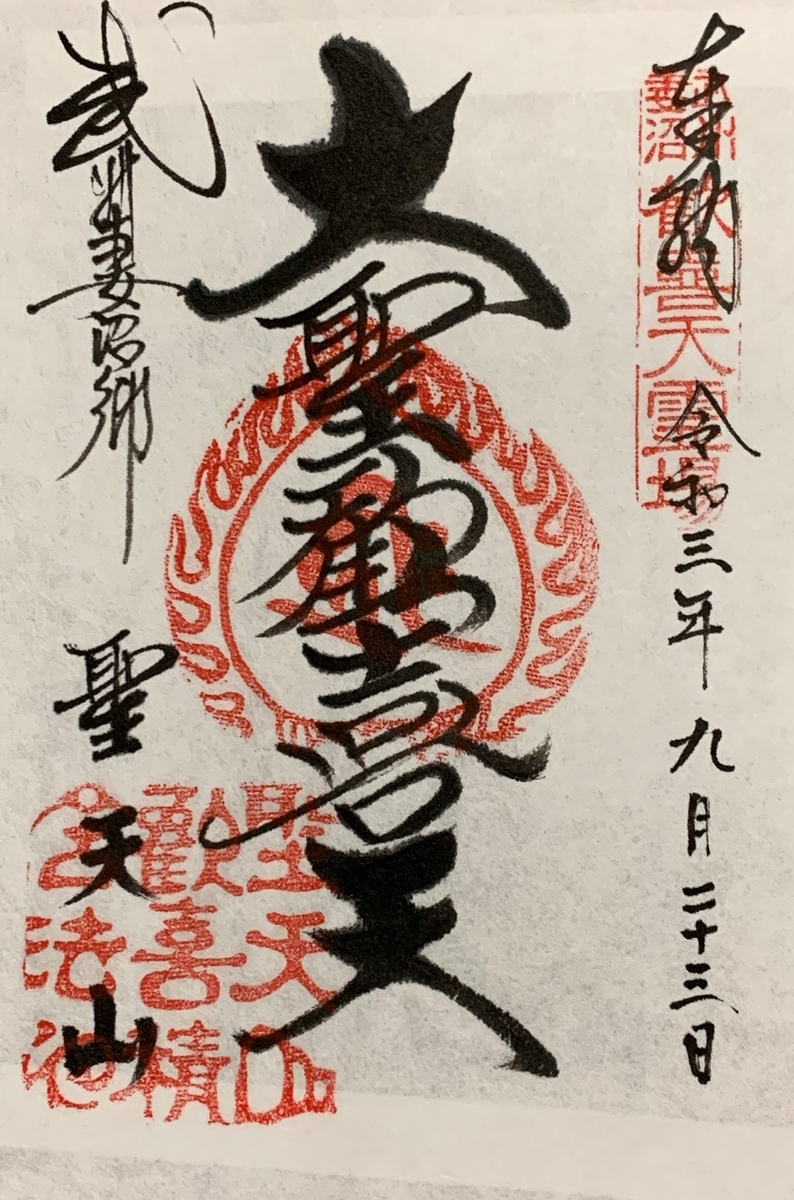 奉拝
令和三年九月二十三日
妻沼
歓喜天霊場
大聖歓喜天
武州妻沼郷
聖天山
聖天山
歓喜積